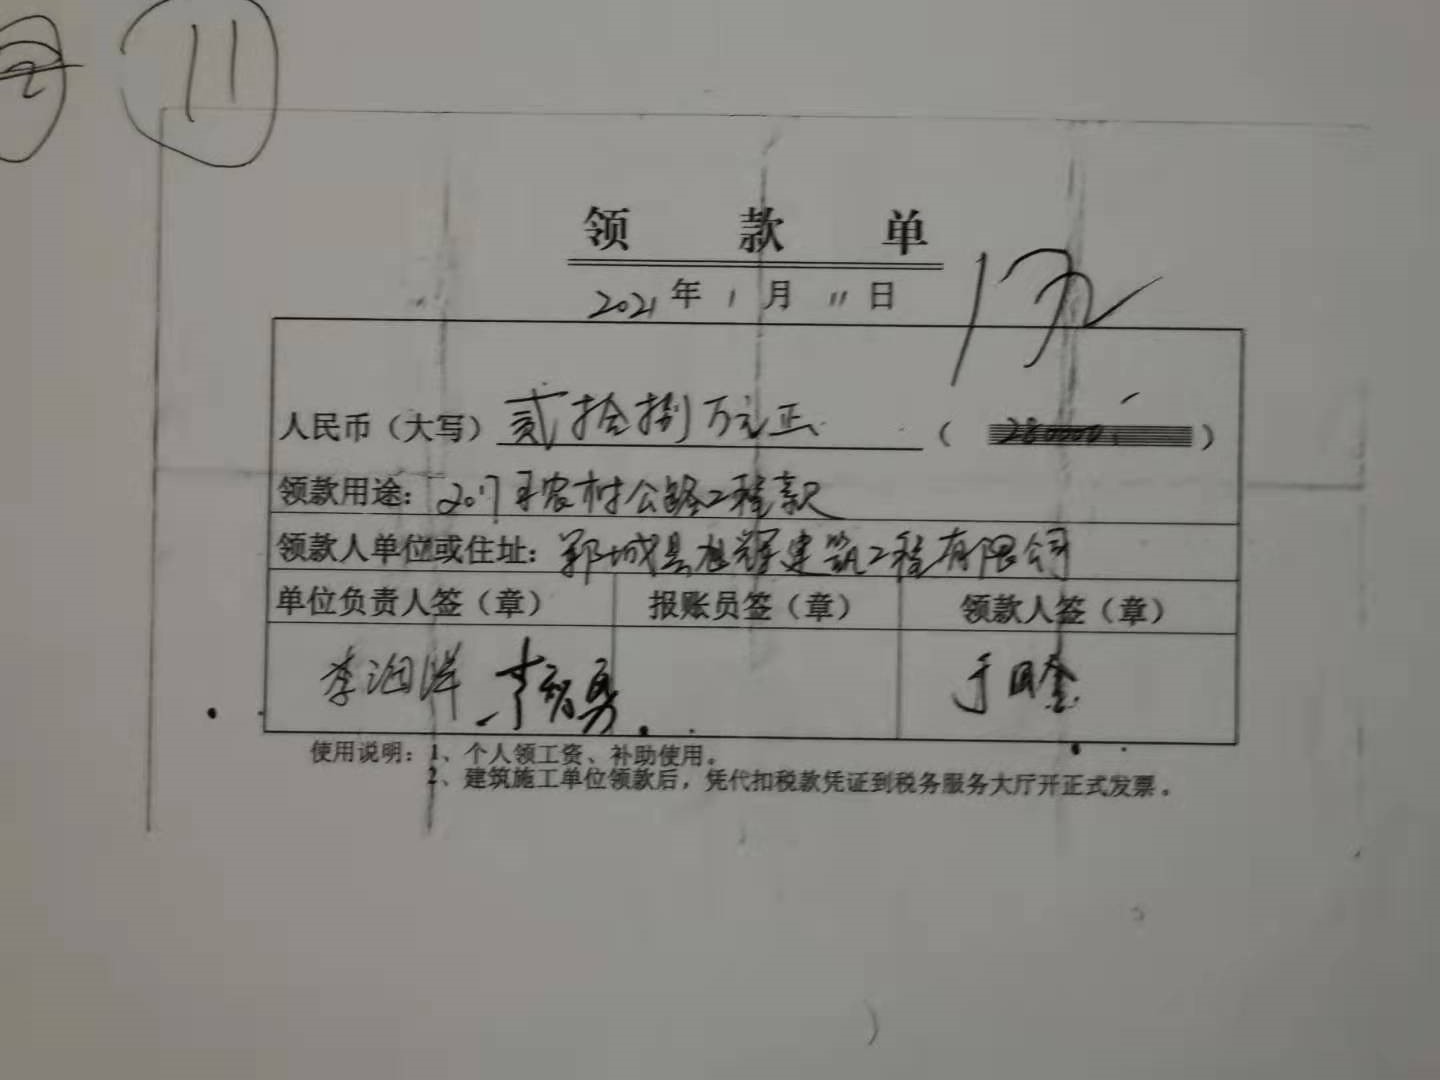 2 11
领款单
2021年1月11日
人民币（大写）贰拾捌万元正（280000.）
领款用途：2017年农村公路工程款
领款人单位或住址：郓城县旭辉建筑工程有限公司
单位负责人签（章） 报账员签（章） 领款人签（章）
李 于
使用说明：1、个人领工资、补助使用。
2、建筑施工单位领款后，凭代扣税款凭证到税务服务大厅开正式发票。